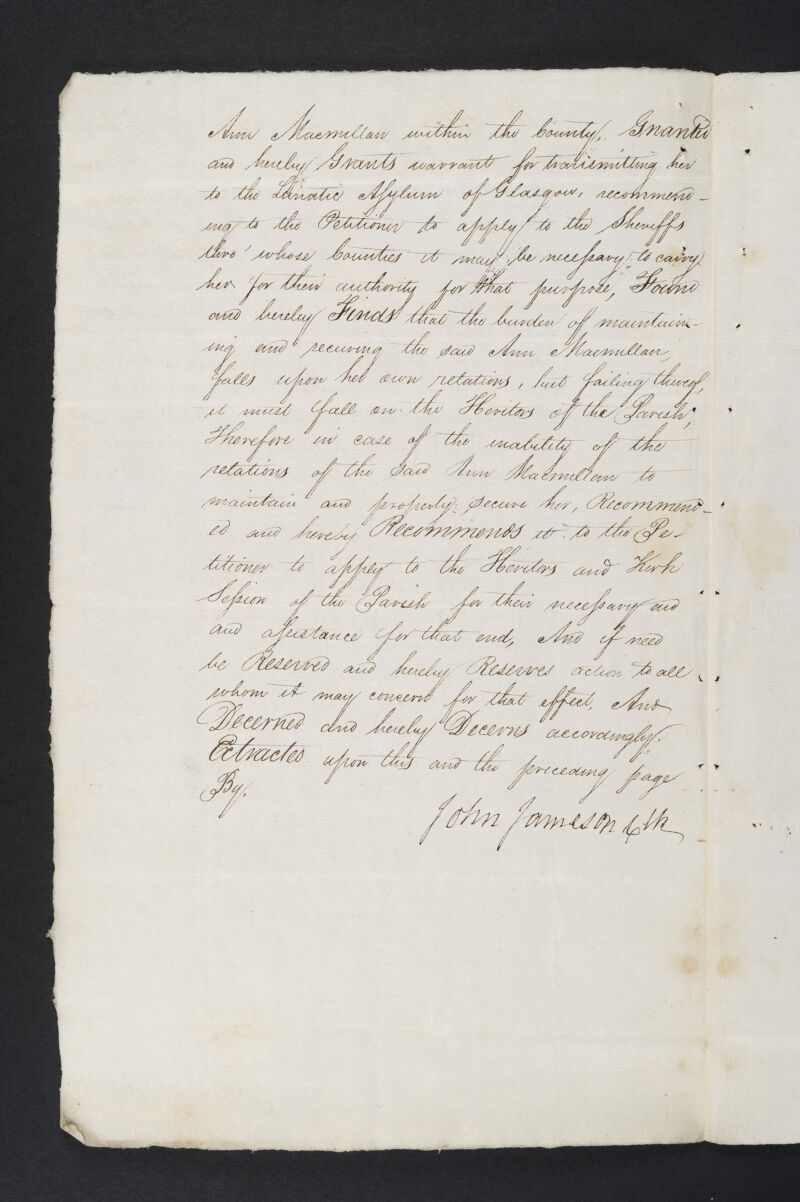 Ann Macmillan within the County, Granted
and hereby Grants warrant for transmitting her
to the Lunatic Asylum of Glasgow, recommend-
ing to the Petitioner to apply to the Sheriffs
thro' whose Counties it may be necessary to carry
her for their authority for that purpose, Found
and hereby Finds that the burden of maintain-
ing and securing the said Ann Macmillan,
falls upon her own relations, but failing thereof,
it must fall on the Heritors of the Parish,
Therefore in case of the inability of the
relations of the said Ann Macmillan to
maintain and properly secure her, Recommend-
ed and hereby Recommends it to the Pe-
titioner to apply to the Heritors and Kirk
Session of the Parish for their necessary aid
and assistance for that end, And if need
be Reserved and hereby Reserves action to all
whom it may concern for that effect, And
Decerned and hereby Decerns accordingly.
Extracted upon this and the preceding page
By.
John Jameson Clk